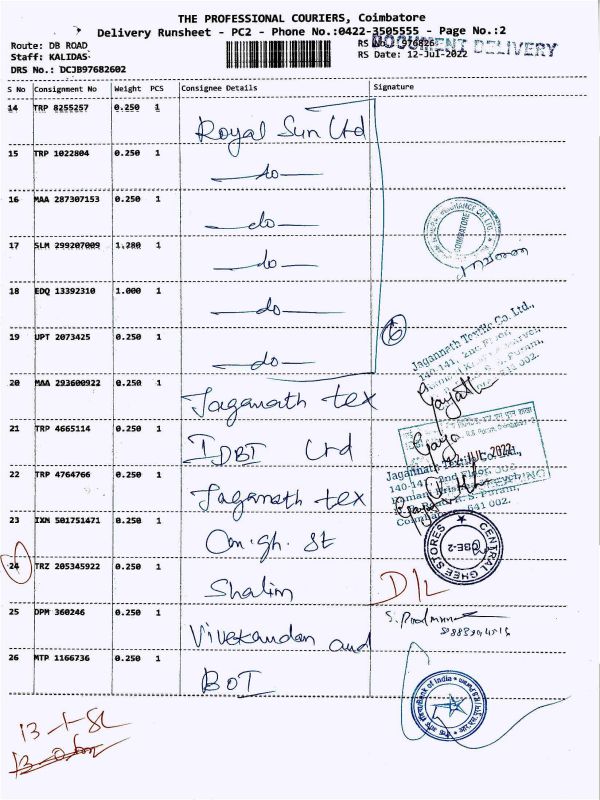 THE PROFESSIONAL COURIERS, Coimbatore
Delivery Runsheet - PC2 - Phone No.:0422-3505555 - Page No.:2
Route: DB ROAD
RS No.: 976826
DOCUMENT DELIVERY
Staff: KALIDAS
RS Date: 12-Jul-2022
DRS No.: DCJB97682602
S No Consignment No Weight PCS Consignee Details Signature
14 TRP 8255257 0.250 1
Royal Sun Ltd
15 TRP 1022804 0.250 1
do
16 MAA 287307153 0.250 1
do
17 SLM 299207009 1.280 1
do
18 EDQ 13392310 1.000 1
do
19 UPT 2073425 0.250 1
do
6
Jagannath Textile Co. Ltd.,
140-141, 2nd Floor,
20 MAA 293600922 0.250 1
Jaganath tex
Gayathri
21 TRP 4665114 0.250 1
IDBI Ltd
12 JUL 2022
22 TRP 4764766 0.250 1
Jaganath tex
Jagannath Textile Co. Ltd.,
140-141, 2nd Floor,
R. S. Puram,
Coimbatore 641 002.
23 IXM 501751471 0.250 1
Om.gh. St
CENTRAL GHEE STORES
CBE-2
24 TRZ 205345922 0.250 1
Shalin
D/L
25 DPM 360246 0.250 1
Vivekandan and
26 MTP 1166736 0.250 1
BOI
Bank of India
13-1-8L